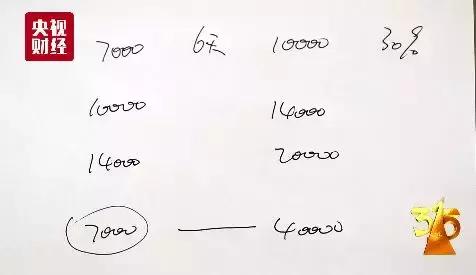 央视
财经
7000 6天 10000 30%
10000 14000
14000 20000
7000 — 40000
315